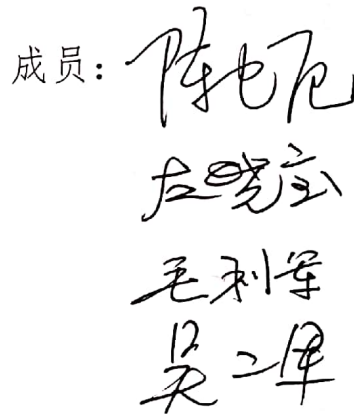 成员：陈
左晓宝
毛利军
吴二军